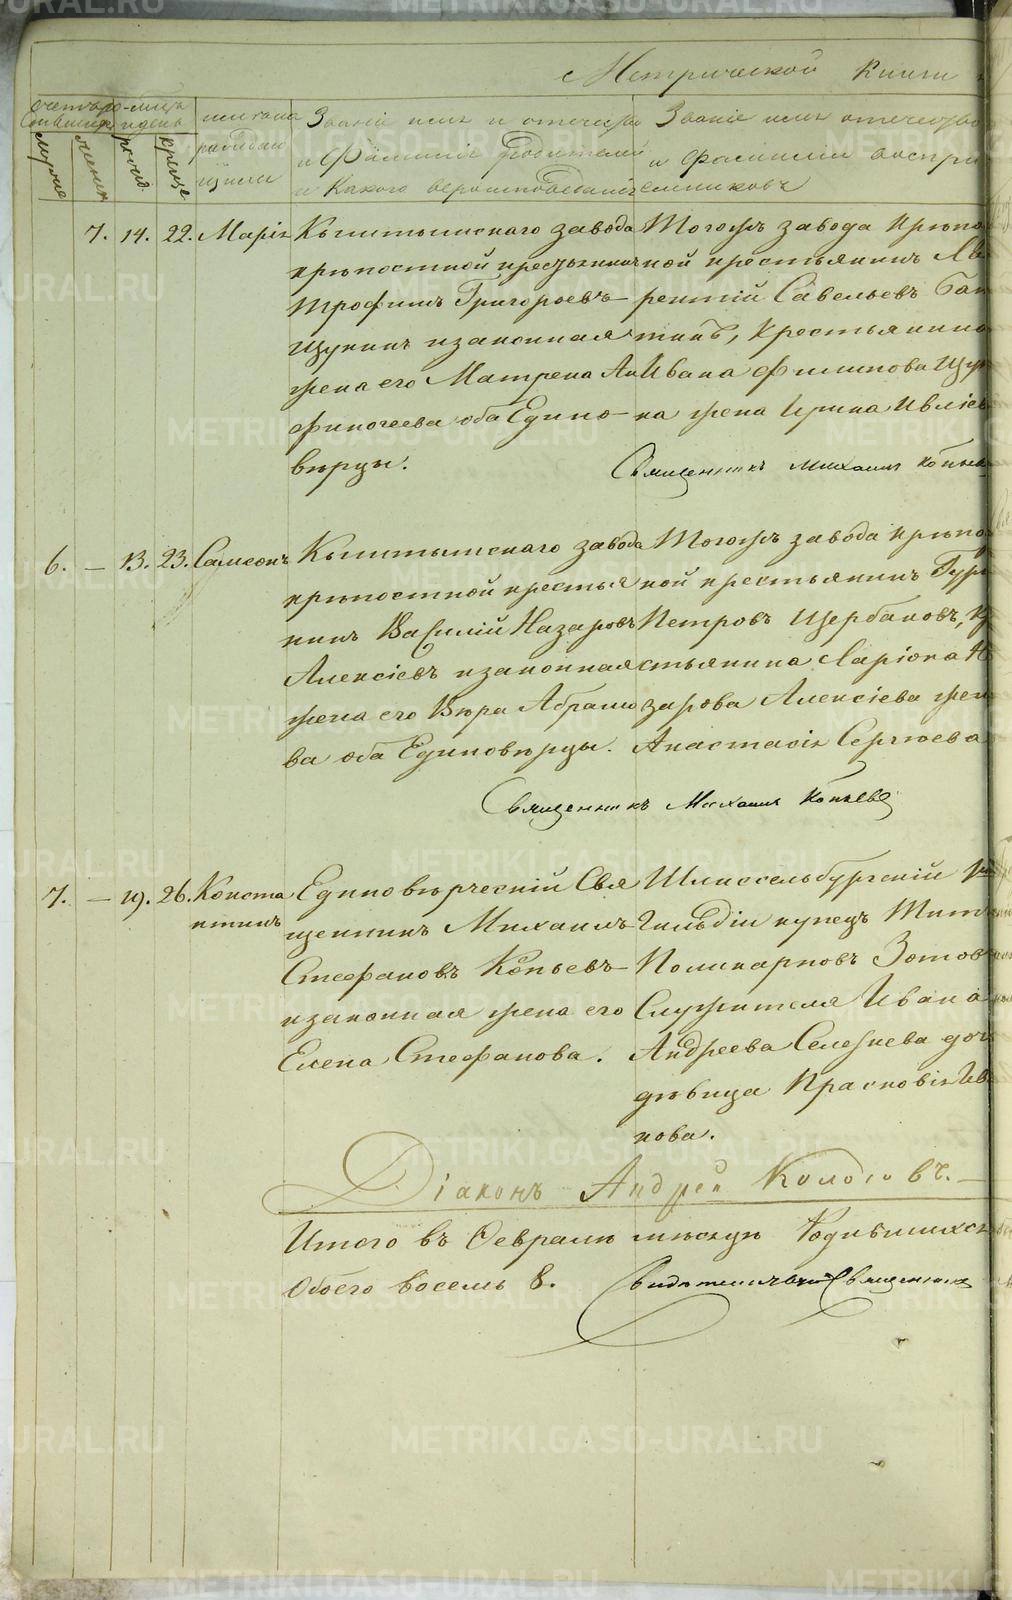 Метрической Книги
Счетъ ро-дившихся
месяцъ и день
мужие
женски
рожд.
креще
имена родившихся
Званіе имя и отечество и Фамиліе Родителей и Какого вероисповеданія
Званіе имя отечество и фамиліи воспріемниковъ
7. 14. 22. Марія
Кыштымскаго завода
крѣпостной крестьянинъ
Трофимъ Григорьевъ
Щукинъ изаконная
жена его Матрена Аи-
финогеева оба Едино-
вѣрцы.
Тогожъ завода крѣпо
ной крестьянинъ Ла
рентій Савельевъ Бат
тинъ, Крестьянина
Ивана Филипова Щу
ка жена Ирина Ивліев
Священникъ Михаилъ Копьев
6. — 13. 23. Самсонъ
Кыштымскаго завода
крѣпостной крестья
нинъ Василій Назаровъ
Алексіевъ изаконная
жена его Вѣра Абрамо
ва оба Единовѣрцы.
Тогожъ завода крѣпо
ной крестьянинъ Гурі
Петровъ Щербаковъ, кр
стьянина Ларіона На
зарова Алексіева жен
Анастасія Сергіева
Священникъ Михаилъ Копьевъ
7. — 19. 26. Конста
нтинъ
Единовѣрческій Свя
щенникъ Михаилъ
Стефановъ Копьевъ
изаконная жена его
Елена Стефанова.
Шлиссельбургскій
Гильдіи купецъ Тит
Поликарповъ Зотов
Служителя Ивана
Андреева Селезнева доч
дѣвица Прасковія Ив
нова.
Діаконъ Андрей Колосовъ.
Итого въ Февралѣ мѣсяцѣ Родившихся
Обоего восемь 8.
Свидѣтельствую Священникъ
METRIKI.GASO-URAL.RU